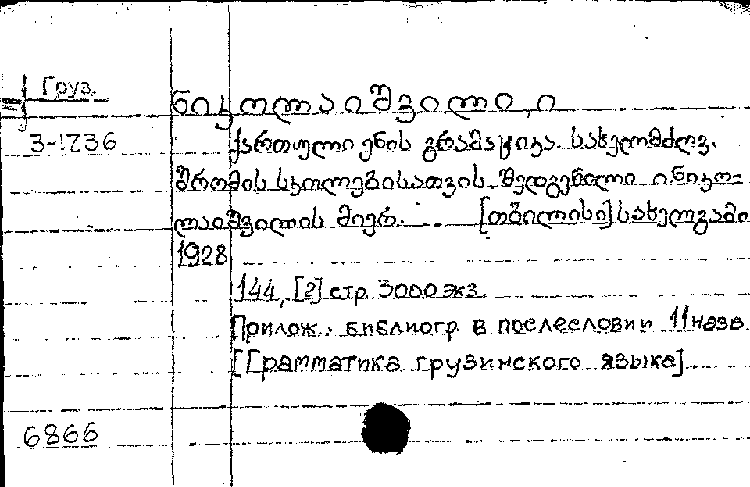 Груз.
ნიკოლაიშვილი, ი
3-1236
ქართული ენის გრამატიკა. სახელმძღვ.
შრომის სკოლებისათვის შედგენილი ი. ნიკო-
ლაიშვილის მიერ. [თბილისი] სახელგამი
1928
144, [2] стр. 3000 экз.
Прилож.: библиогр. в послесловии 11 назв.
[Грамматика грузинского языка]
6866